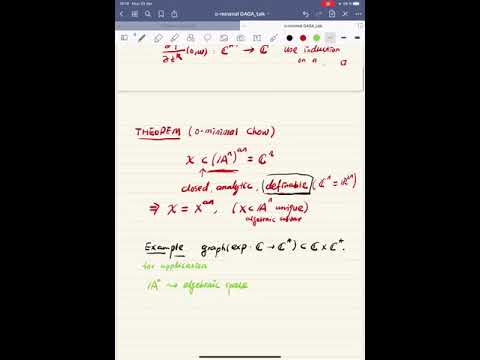 o-minimal GAGA_talk
o-minimal GAGA_talk
∂t^k (0,w) : ℂ^n → ℂ use induction
on n. □
THEOREM (o-minimal Chow)
X ⊂ (𝔸^n)^an = ℂ^n
closed, analytic, definable (ℂ^n = ℝ^2n)
⇒ X = X^an, (X ⊂ 𝔸^n unique)
algebraic
Example graph(exp: ℂ → ℂ*) ⊂ ℂ × ℂ*.
for application
𝔸^n ⇝ algebraic space